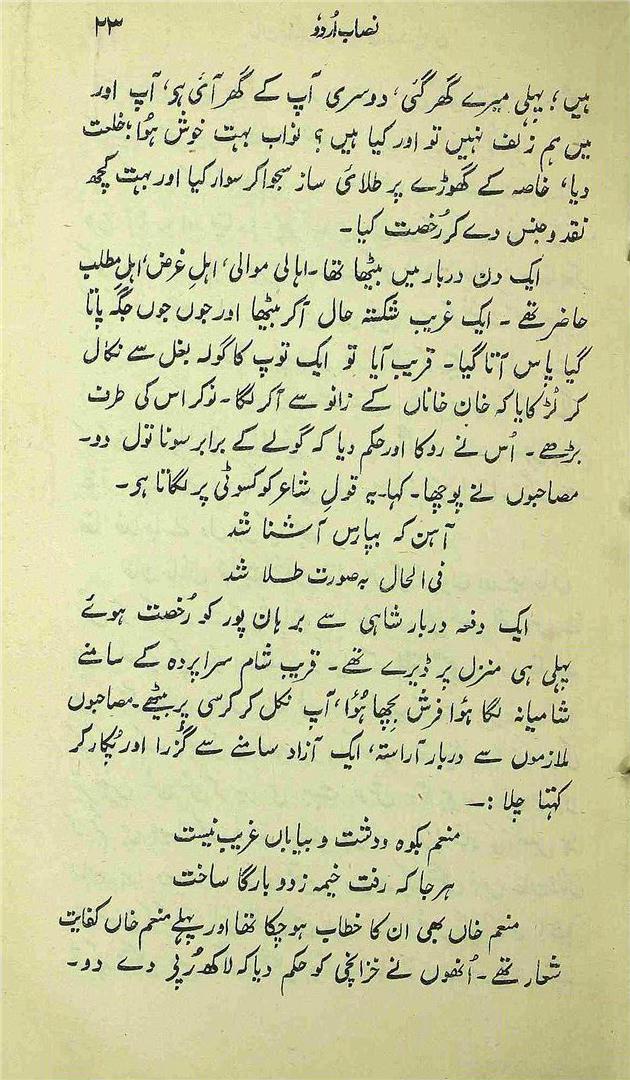 نصاب اُردو ۲۳
ہیں؛ پہلی میرے گھر گئی، دوسری آپ کے گھر آئی ہو، آپ اور
ہیں ہم زلف نہیں تو اور کیا ہیں؟ نواب بہت خوش ہُوا؛ خلعت
دیا، خاصہ کے گھوڑے پر طلائی ساز سجوا کر سوار کیا اور بہت کچھ
نقد و جنس دے کر رُخصت کیا۔
ایک دن دربار میں بیٹھا تھا۔ اہالی موالی، اہلِ غرض، اہلِ مطلب
حاضر تھے۔ ایک غریب شکستہ حال آکر بیٹھا اور جوں جوں جگہ پاتا
گیا پاس آتا گیا۔ قریب آیا تو ایک توپ کا گولہ بغل سے نکال
کر لُڑکایا کہ خان خاناں کے زانو سے آکر لگا۔ نوکر اس کی طرف
بڑھے۔ اُس نے روکا اور حکم دیا کہ گولے کے برابر سونا تول دو۔
مصاحبوں نے پوچھا۔ کہا۔ یہ قولِ شاعر کو کسوٹی پر لگاتا ہو۔
آہن کہ بپارس آشنا شد
فی الحال بہ صورت طلا شد
ایک دفعہ دربار شاہی سے برہان پور کو رُخصت ہوئے
پہلی ہی منزل پر ڈیرے تھے۔ قریب شام سراپردہ کے سامنے
شامیانہ لگا ہُوا فرش بچھا ہُوا، آپ نکل کر کرسی پر بیٹھے۔ مصاحبوں
ملازموں سے دربار آراستہ، ایک آزاد سامنے سے گُزرا اور پُکار کر
کہتا چلا :۔
منعم بکوہ و دشت و بیاباں غریب نیست
ہر جا کہ رفت خیمہ زد و بارگا ساخت
منعم خاں بھی ان کا خطاب ہو چکا تھا اور پہلے منعم خاں کفایت
شعار تھے۔ اُنھوں نے خزانچی کو حکم دیا کہ لاکھ رُپی دے دو۔